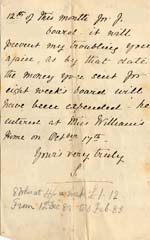 12th of this month for J.
board - it will
prevent my troubling you
again, as by that date
the money you sent for
eight weeks board will
have been expended - he
entered at Miss William's
Home on October 17th.
Yours very truly
8 weeks at 4/- a week £1.12
From 12 Dec 82 to Feb 83